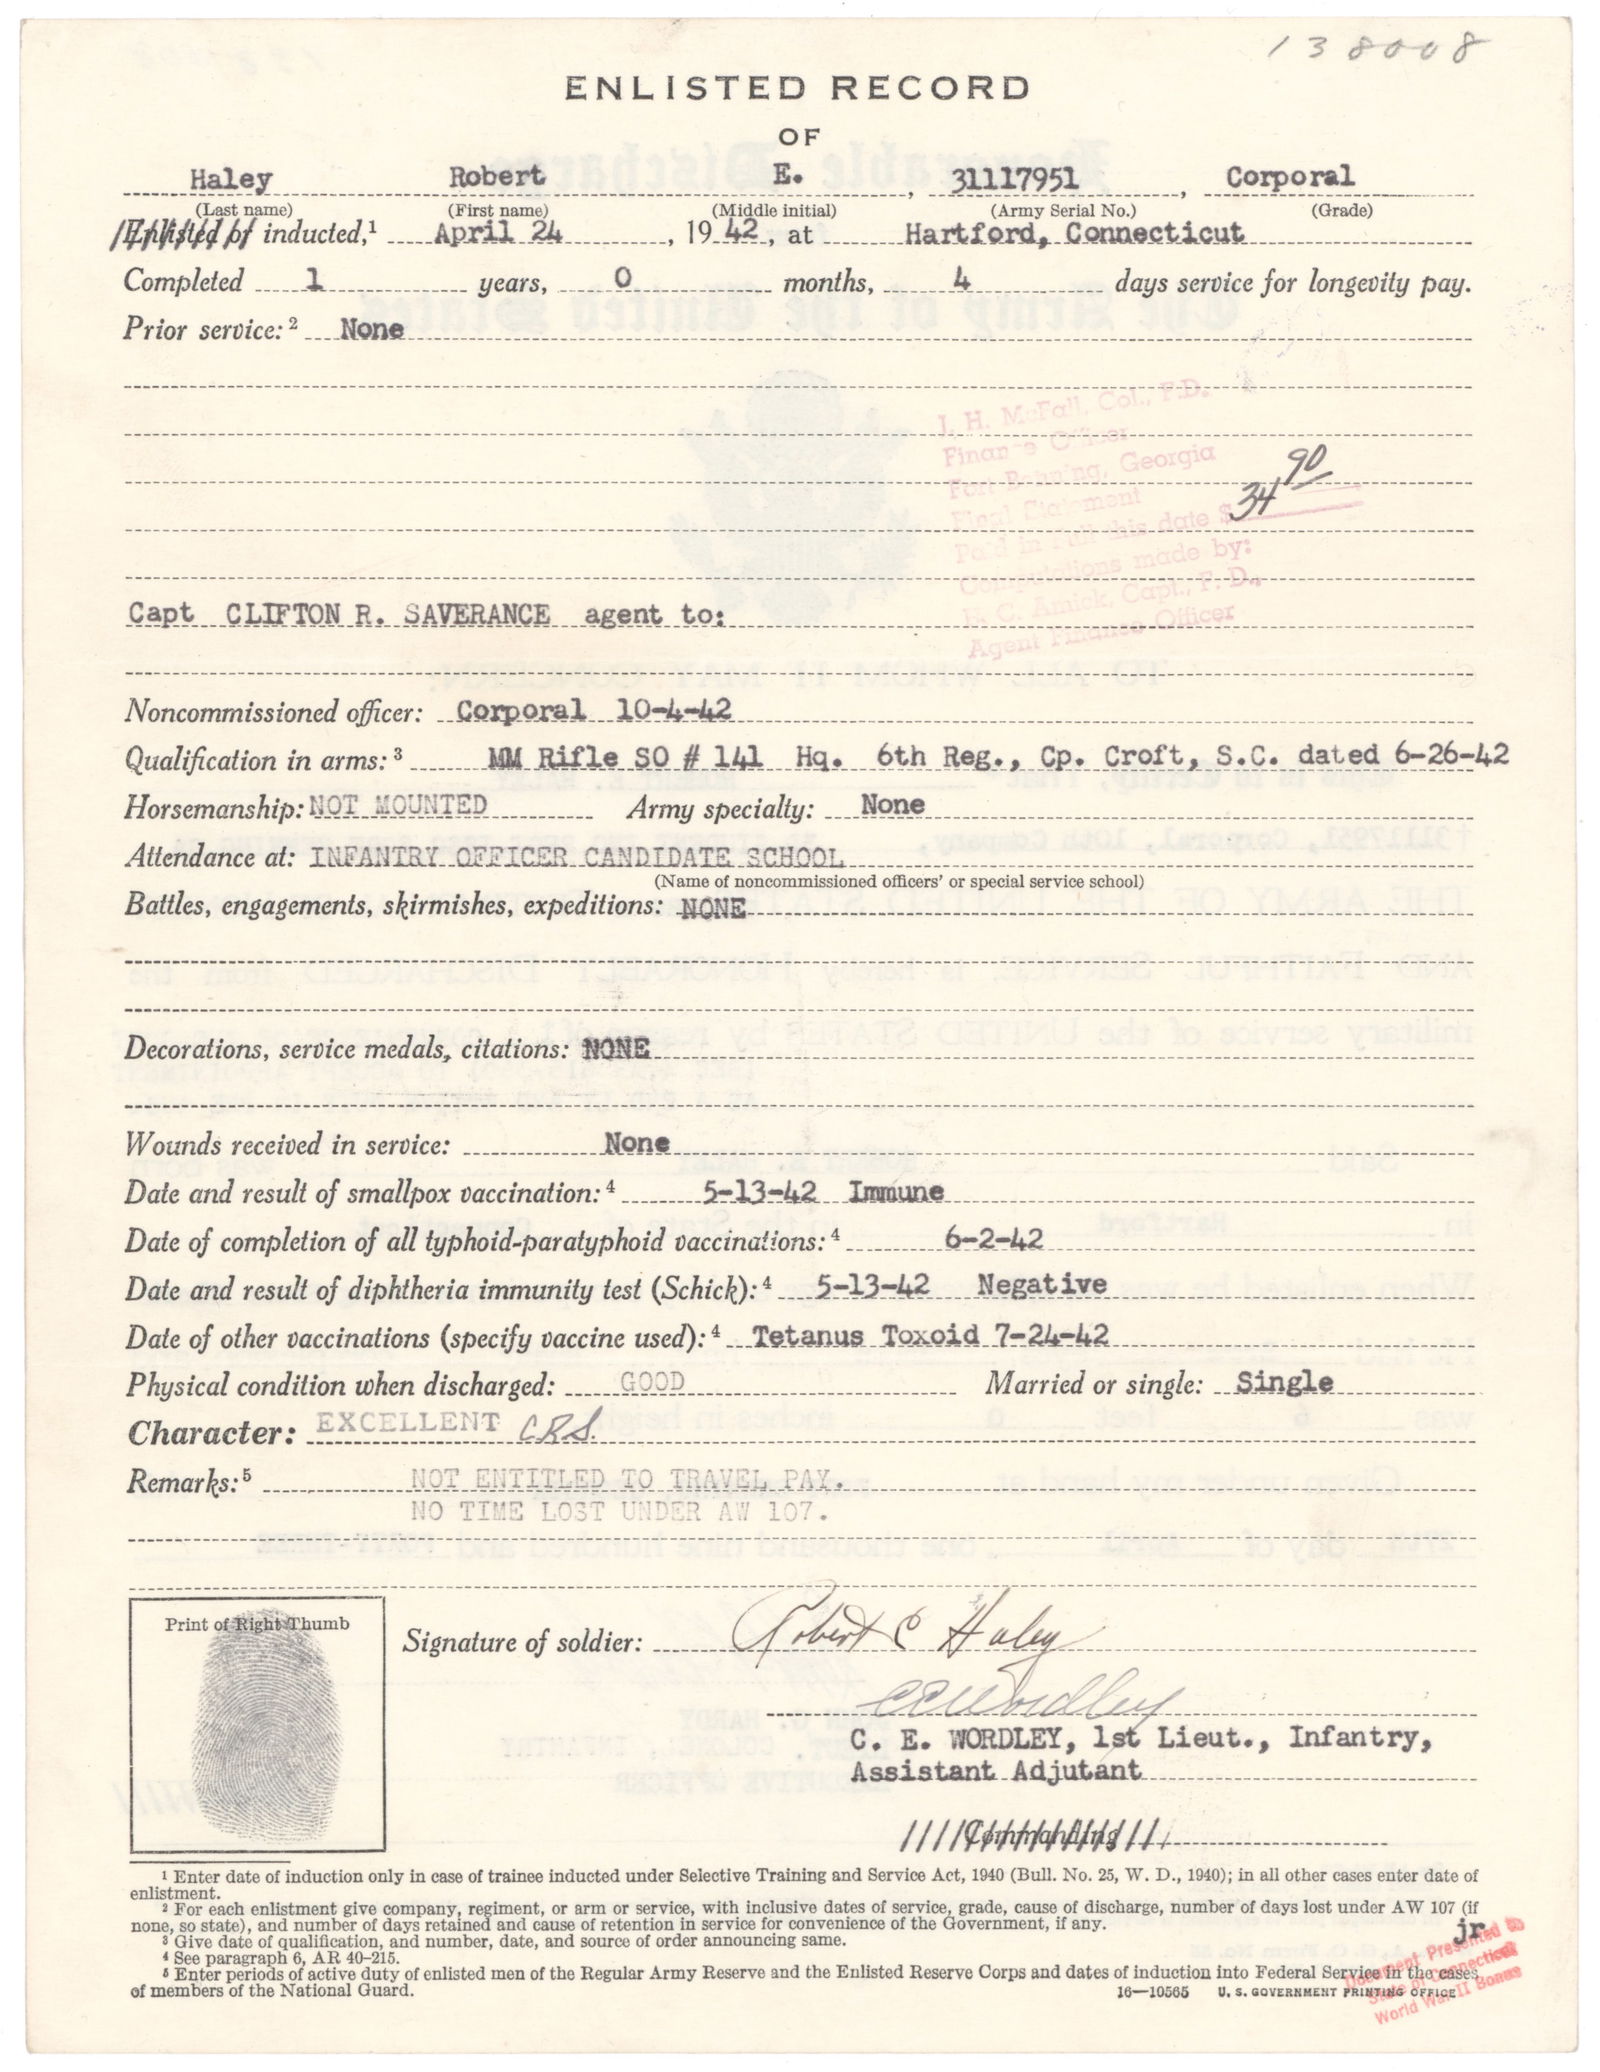 138008
ENLISTED RECORD
OF
Haley Robert E. , 31117951 , Corporal
(Last name) (First name) (Middle initial) (Army Serial No.) (Grade)
Enlisted or inducted,¹ April 24 , 19 42 , at Hartford, Connecticut
Completed 1 years, 0 months, 4 days service for longevity pay.
Prior service:² None
J. H. McFall, Col., F.D.
Finance Officer
Fort Benning, Georgia
Final Statement
Paid in full this date $ 34 90
Computations made by:
H. C. Amick, Capt., F. D.,
Agent Finance Officer
Capt CLIFTON R. SAVERANCE agent to:
Noncommissioned officer: Corporal 10-4-42
Qualification in arms:³ MM Rifle SO # 141 Hq. 6th Reg., Cp. Croft, S.C. dated 6-26-42
Horsemanship: NOT MOUNTED Army specialty: None
Attendance at: INFANTRY OFFICER CANDIDATE SCHOOL
(Name of noncommissioned officers' or special service school)
Battles, engagements, skirmishes, expeditions: NONE
Decorations, service medals, citations: NONE
Wounds received in service: None
Date and result of smallpox vaccination:⁴ 5-13-42 Immune
Date of completion of all typhoid-paratyphoid vaccinations:⁴ 6-2-42
Date and result of diphtheria immunity test (Schick):⁴ 5-13-42 Negative
Date of other vaccinations (specify vaccine used):⁴ Tetanus Toxoid 7-24-42
Physical condition when discharged: GOOD Married or single: Single
Character: EXCELLENT CRS.
Remarks:⁵ NOT ENTITLED TO TRAVEL PAY.
NO TIME LOST UNDER AW 107.
Print of Right Thumb
Signature of soldier: Robert E Haley
C E Wordley
C. E. WORDLEY, 1st Lieut., Infantry,
Assistant Adjutant
Commanding
¹ Enter date of induction only in case of trainee inducted under Selective Training and Service Act, 1940 (Bull. No. 25, W. D., 1940); in all other cases enter date of
enlistment.
² For each enlistment give company, regiment, or arm or service, with inclusive dates of service, grade, cause of discharge, number of days lost under AW 107 (if
none, so state), and number of days retained and cause of retention in service for convenience of the Government, if any.
jr
³ Give date of qualification, and number, date, and source of order announcing same.
⁴ See paragraph 6, AR 40-215.
⁵ Enter periods of active duty of enlisted men of the Regular Army Reserve and the Enlisted Reserve Corps and dates of induction into Federal Service in the cases
of members of the National Guard.
16—10565 U. S. GOVERNMENT PRINTING OFFICE
Document Presented to
State of Connecticut
World War II Bonus